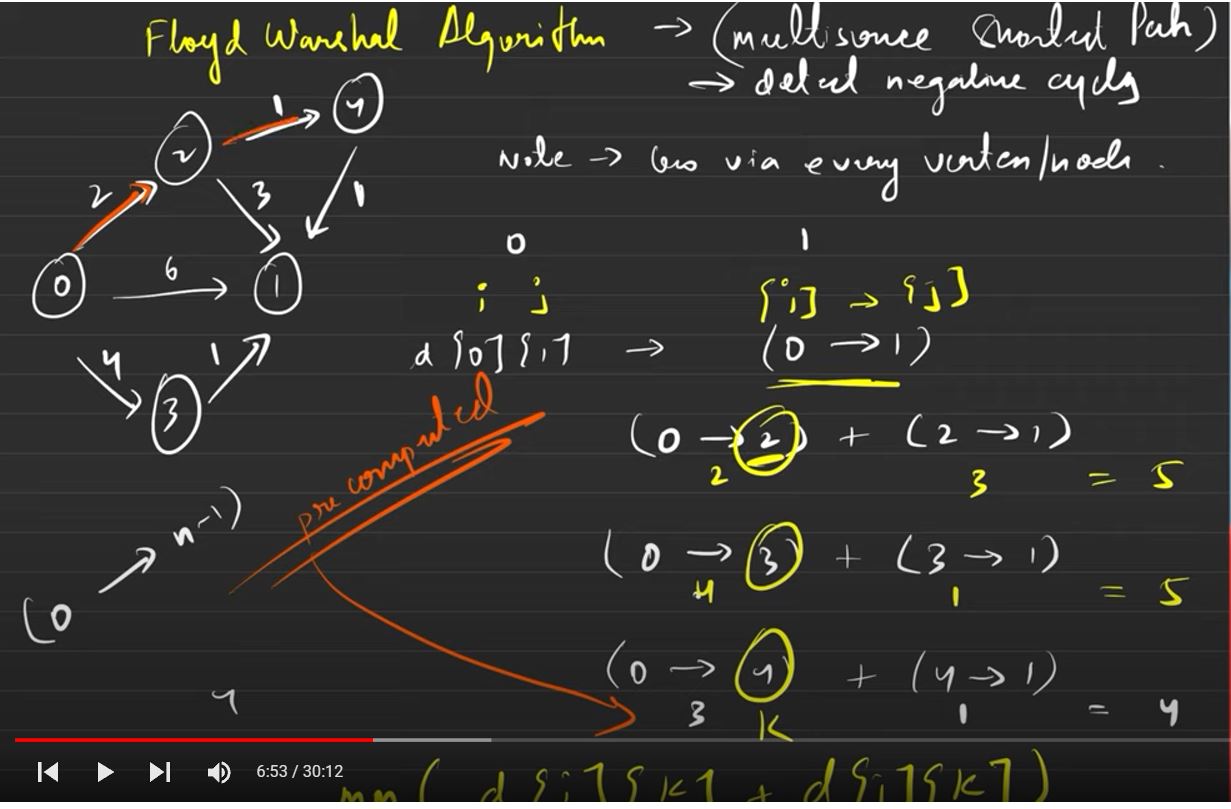 Floyd Warshal Algorithm → (multisource Shortest Path)
→ detect negative cycles
Note → Go via every vertex/node.
2
1
4
2
3
1
0
6
1
4
1
3
0 1
i j [i] → [j]
d[0][1] → (0 → 1)
precomputed
(0 → 2) + (2 → 1)
2 3 = 5
(0 → n-1)
(0 → 3) + (3 → 1)
4 1 = 5
(0 → 4) + (4 → 1)
3 K 1 = 4
4
6:53 / 30:12
min( d[i][k] + d[i][k])